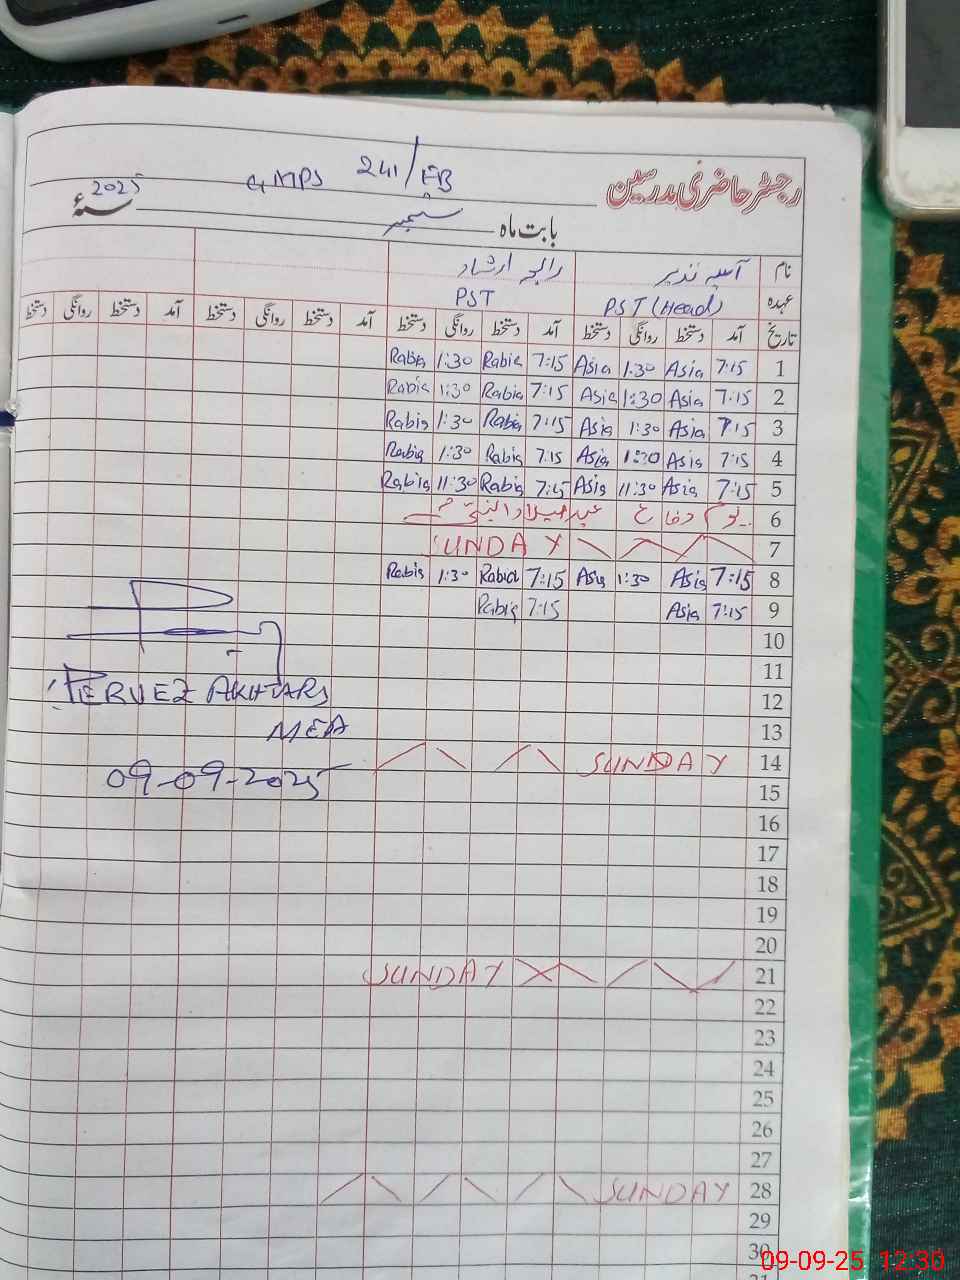 رجسٹر حاضری مدرسین
GMPS 241/EB
2025 سنۂ
بابت ماہ ستمبر
نام آسیہ نذیر رابعہ ارشاد
عہدہ PST (Head) PST
تاریخ آمد دستخط روانگی دستخط آمد دستخط روانگی دستخط آمد دستخط روانگی دستخط آمد دستخط روانگی دستخط
1 7:15 Asia 1:30 Asia 7:15 Rabia 1:30 Rabia
2 7:15 Asia 1:30 Asia 7:15 Rabia 1:30 Rabia
3 7:15 Asia 1:30 Asia 7:15 Rabia 1:30 Rabia
4 7:15 Asia 1:30 Asia 7:15 Rabia 1:30 Rabia
5 7:15 Asia 11:30 Asia 7:15 Rabia 11:30 Rabia
6 یوم دفاع عید میلاد النبیؐ
7 SUNDAY
8 7:15 Asia 1:30 Asia 7:15 Rabia 1:30 Rabia
9 7:15 Asia 7:15 Rabia
10
11
PERVEZ AKHTAR
12
MEA
13
14 SUNDAY
09-09-2025
15
16
17
18
19
20
21 SUNDAY
22
23
24
25
26
27
28 SUNDAY
29
30
09-09-25 12:30